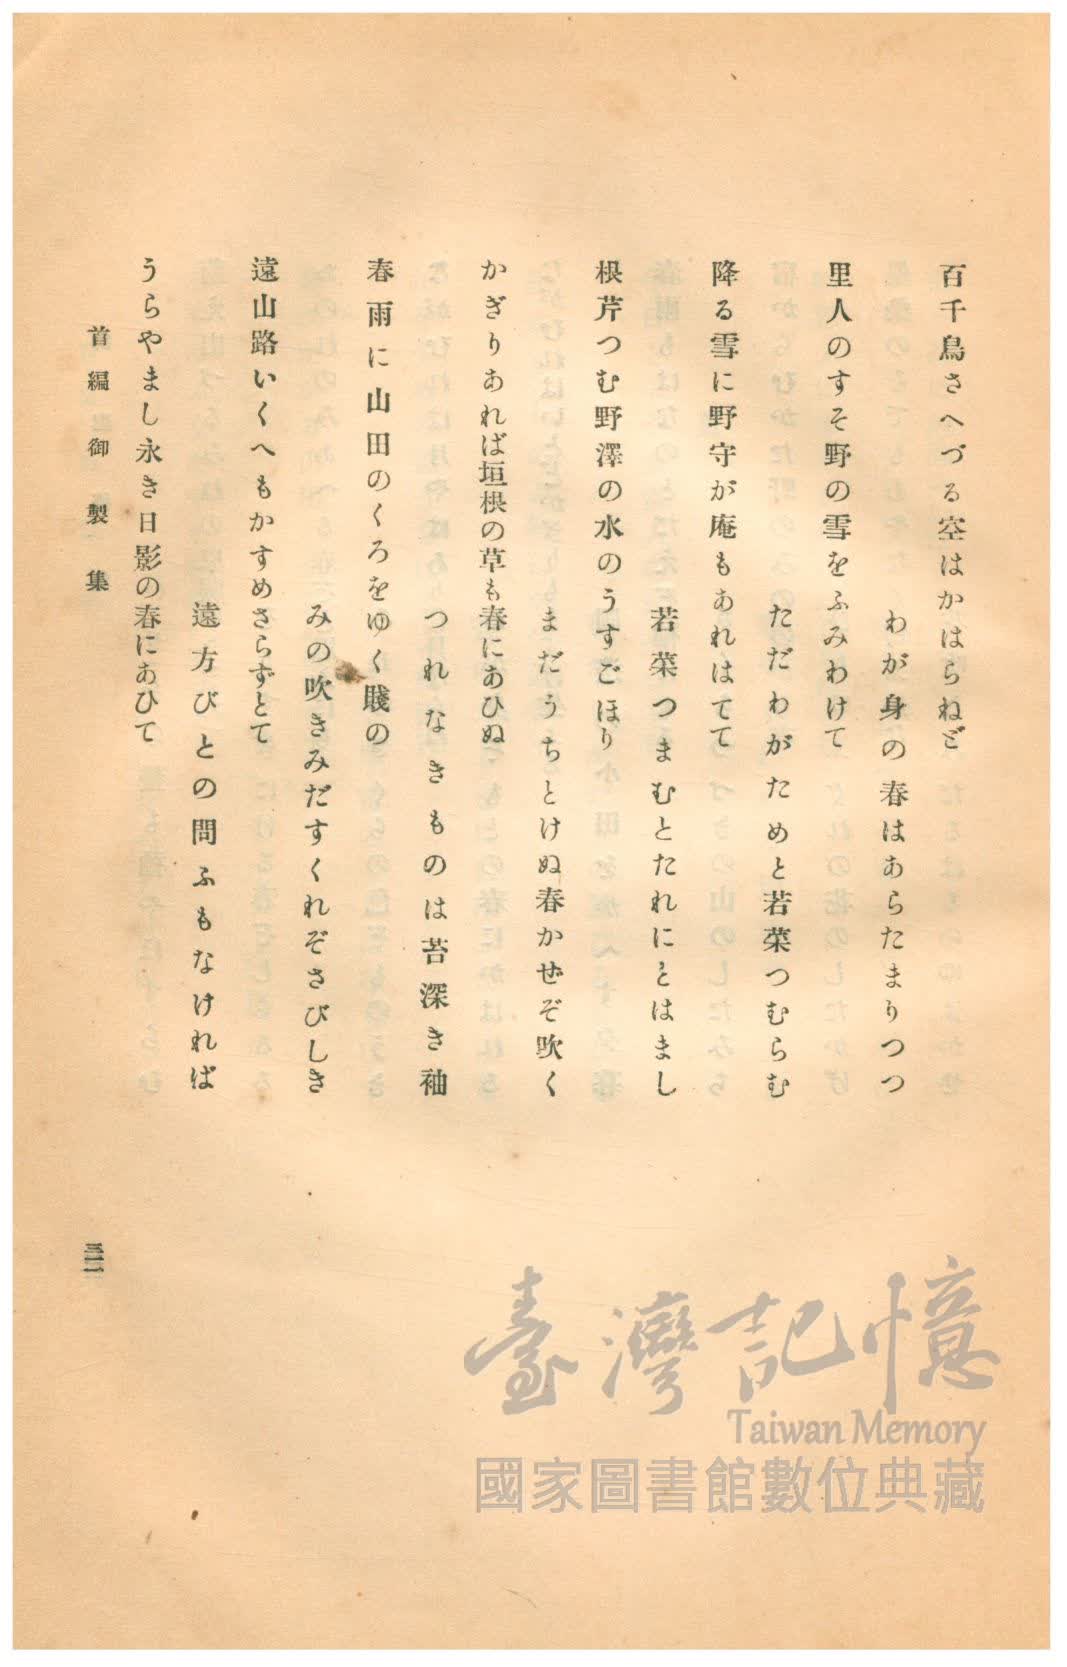 百千鳥さへづる空はかはらねど
わが身の春はあらたまりつつ
里人のすそ野の雪をふみわけて
ただわがためと若菜つむらむ
降る雪に野守が庵もあれはてて
若菜つまむとたれにとはまし
根芹つむ野澤の水のうすごほり
まだうちとけぬ春かぜぞ吹く
かぎりあれば垣根の草も春にあひぬ
つれなきものは苔深き袖
春雨に山田のくろをゆく賤の
みの吹きみだすくれぞさびしき
遠山路いくへもかすめさらずとて
遠方びとの問ふもなければ
うらやまし永き日影の春にあひて
首編 御製集
臺灣記憶
Taiwan Memory
國家圖書館數位典藏